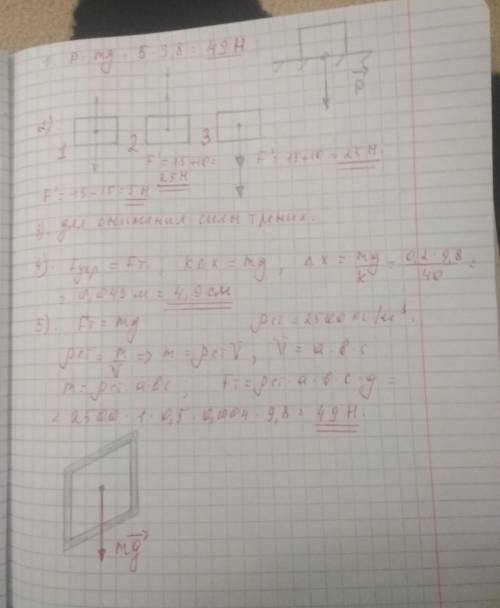 1. P = mg = 5 · 9,8 = 49 Н
P
2)
1 2 3
F' = 15+10 =
25 Н
F' = 15+10 = 25 Н.
F' = 15-10 = 5 Н
3. Для снижения силы трения.
4). Fупр = Fт. kΔx = mg, Δx = mg/k = 0,2 · 9,8/40 =
= 0,049 м = 4,9 см
5). Fт = mg ρст = 2500 кг/м³.
ρст = m/V => m = ρст V, V = a · b · c
m = ρст abc; Fт = ρст · a · b · c · g =
= 2500 · 1 · 0,5 · 0,004 · 9,8 = 49 Н.
mg